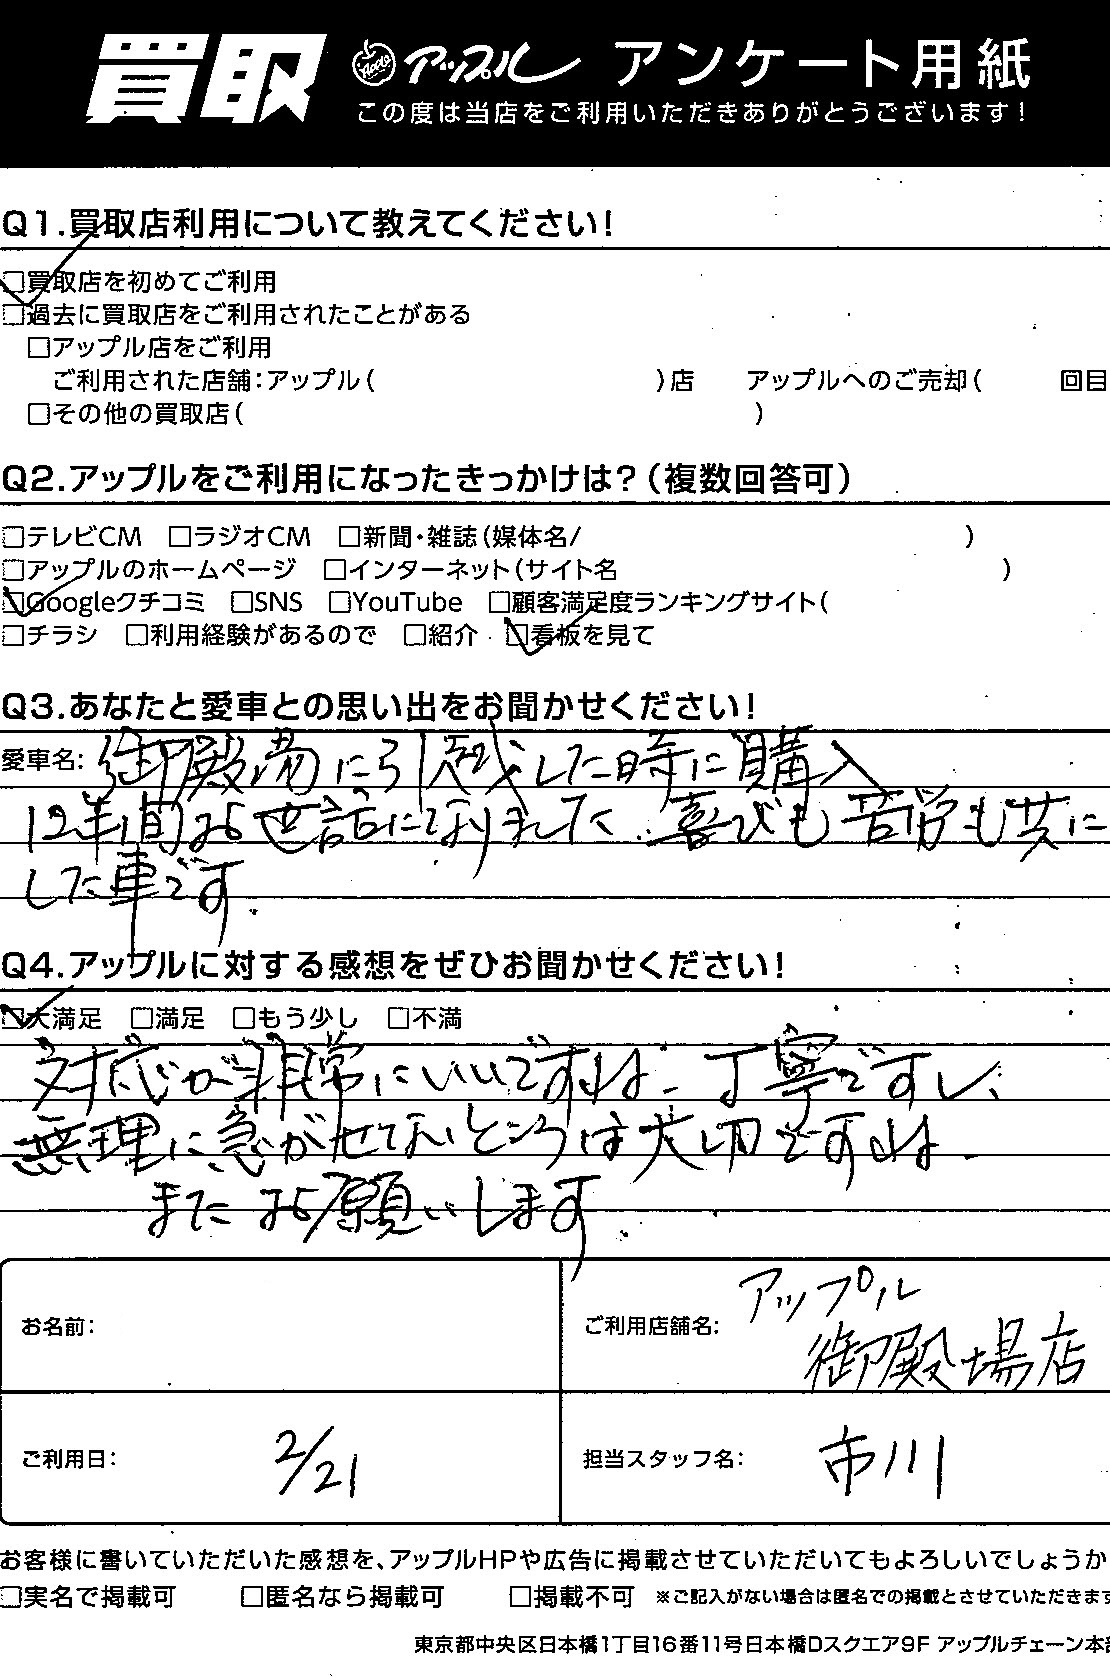 買取 Apple アップル アンケート用紙
この度は当店をご利用いただきありがとうございます!
Q1.買取店利用について教えてください!
□買取店を初めてご利用
□過去に買取店をご利用されたことがある
□アップル店をご利用
ご利用された店舗:アップル( )店 アップルへのご売却( 回目
□その他の買取店( )
Q2.アップルをご利用になったきっかけは?(複数回答可)
□テレビCM □ラジオCM □新聞・雑誌(媒体名/ )
□アップルのホームページ □インターネット(サイト名 )
□Googleクチコミ □SNS □YouTube □顧客満足度ランキングサイト(
□チラシ □利用経験があるので □紹介 □看板を見て
Q3.あなたと愛車との思い出をお聞かせください!
愛車名: 御殿場に引越した時に購入
12年間お世話になりました。喜びも苦労も共に
した車です.
Q4.アップルに対する感想をぜひお聞かせください!
□大満足 □満足 □もう少し □不満
対応が非常にいいですね。丁寧ですし、
無理に急がせないところは大切ですね。
またお願いします.
お名前:
ご利用店舗名: アップル
御殿場店
ご利用日: 2/21
担当スタッフ名: 市川
お客様に書いていただいた感想を、アップルHPや広告に掲載させていただいてもよろしいでしょうか
□実名で掲載可 □匿名なら掲載可 □掲載不可 ※ご記入がない場合は匿名での掲載とさせていただきます
東京都中央区日本橋1丁目16番11号日本橋Dスクエア9F アップルチェーン本部